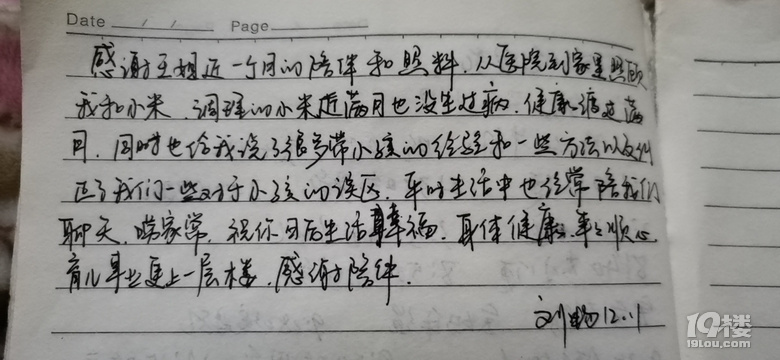 Date / / Page
感谢王姐近一个月的陪伴和照料，从医院到家里照顾
我和小米，调理的小米近满月也没生过病，健康度过满
月，同时也给我说了很多带小孩的经验和一些方法以及纠
正了我们一些对于小孩的误区，平时生活中也经常陪我们
聊天，唠家常，祝你日后生活幸福，身体健康，事事顺心
育儿事业更上一层楼，感谢陪伴．
刘 12.11
19楼
19lou.com